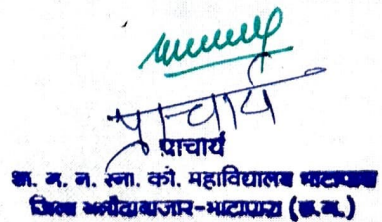 प्राचार्य
प्राचार्य
शा. ग. न. स्ना. को. महाविद्यालय भाटापारा
जिला बलौदाबाजार-भाटापारा (छ.ग.)